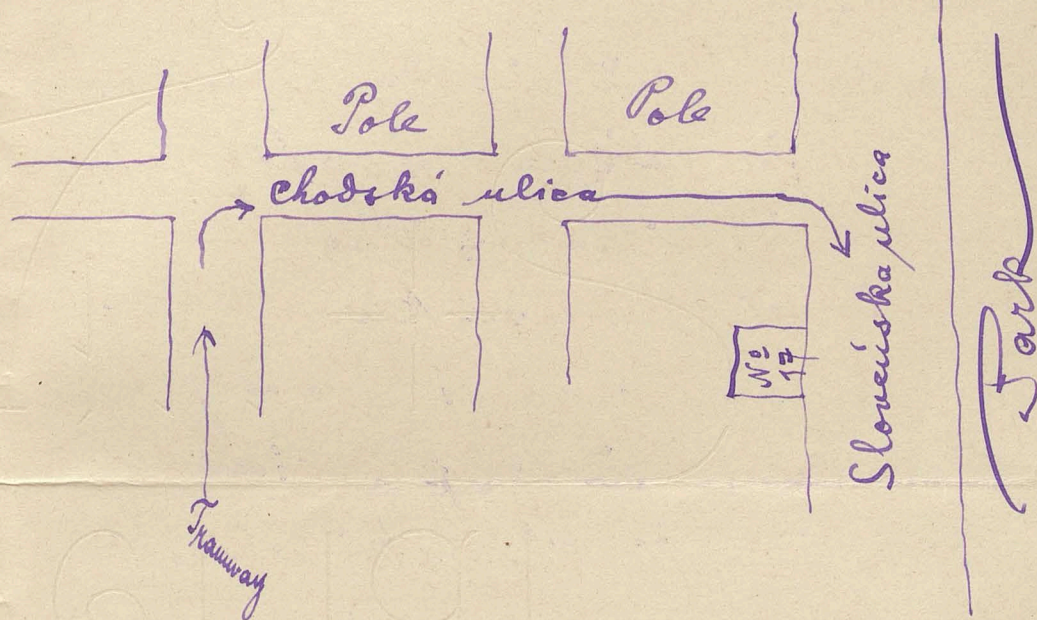 Pole
Pole
Chodská ulica
Slovenska ulica
Park
No
17
Tramway